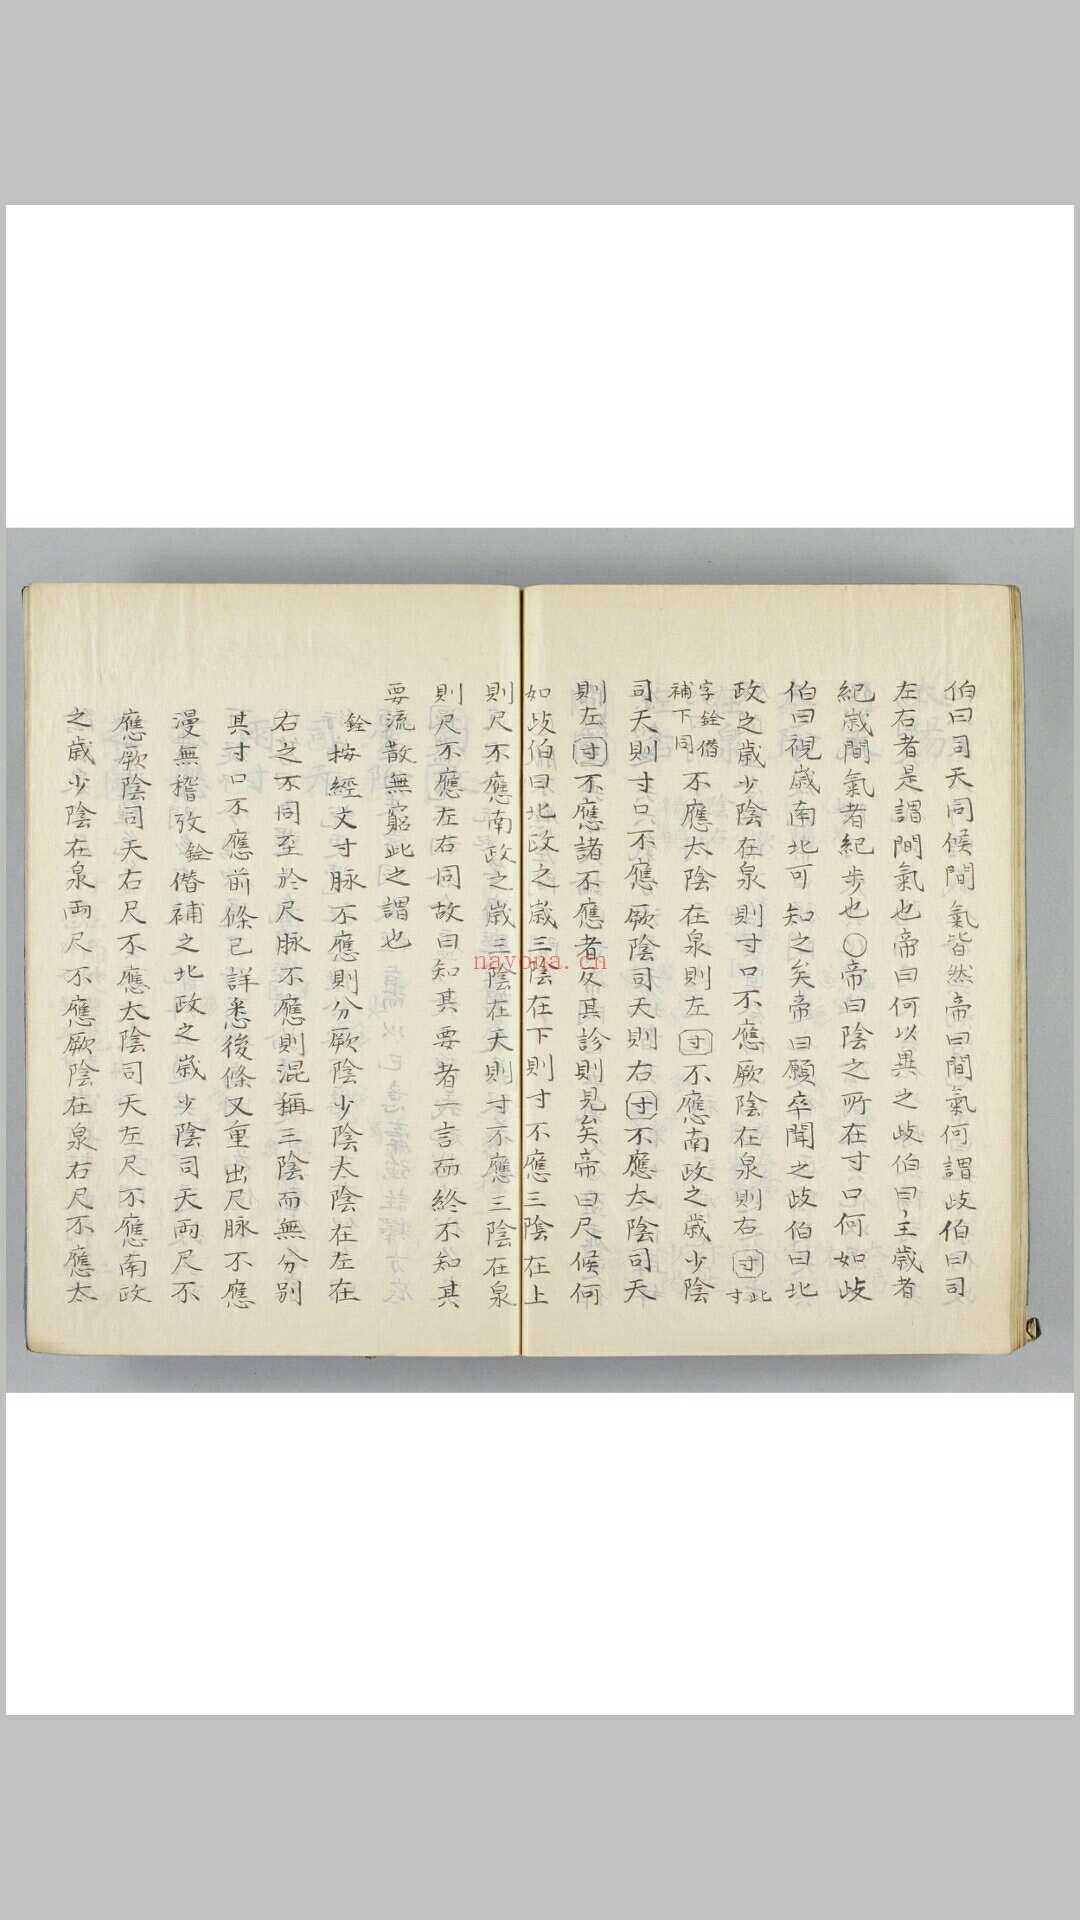 伯曰司天同候間氣皆然帝曰間氣何謂歧伯曰司
左右者是謂間氣也帝曰何以異之歧伯曰主歲者
紀歲間氣者紀步也〇帝曰陰之所在寸口何如歧
伯曰視歲南北可知之矣帝曰願卒聞之歧伯曰北
政之歲少陰在泉則寸口不應厥陰在泉則右寸此寸
字銓僭補下同不應太陰在泉則左寸不應南政之歲少陰
司天則寸口不應厥陰司天則右寸不應太陰司天
則左寸不應諸不應者反其診則見矣帝曰尺候何
如歧伯曰北政之歲三陰在下則寸不應三陰在上
則尺不應南政之歲三陰在天則寸不應三陰在泉
則尺不應左右同故曰知其要者一言而終不知其
要流散無窮此之謂也
銓按經文寸脉不應則分厥陰少陰太陰在左在
右之不同至於尺脉不應則混稱三陰而無分別
其寸口不應前條已詳悉後條又重出尺脉不應
漫無稽攷銓僭補之北政之歲少陰司天兩尺不
應厥陰司天右尺不應太陰司天左尺不應南政
之歲少陰在泉兩尺不應厥陰在泉右尺不應太
nayona.cn